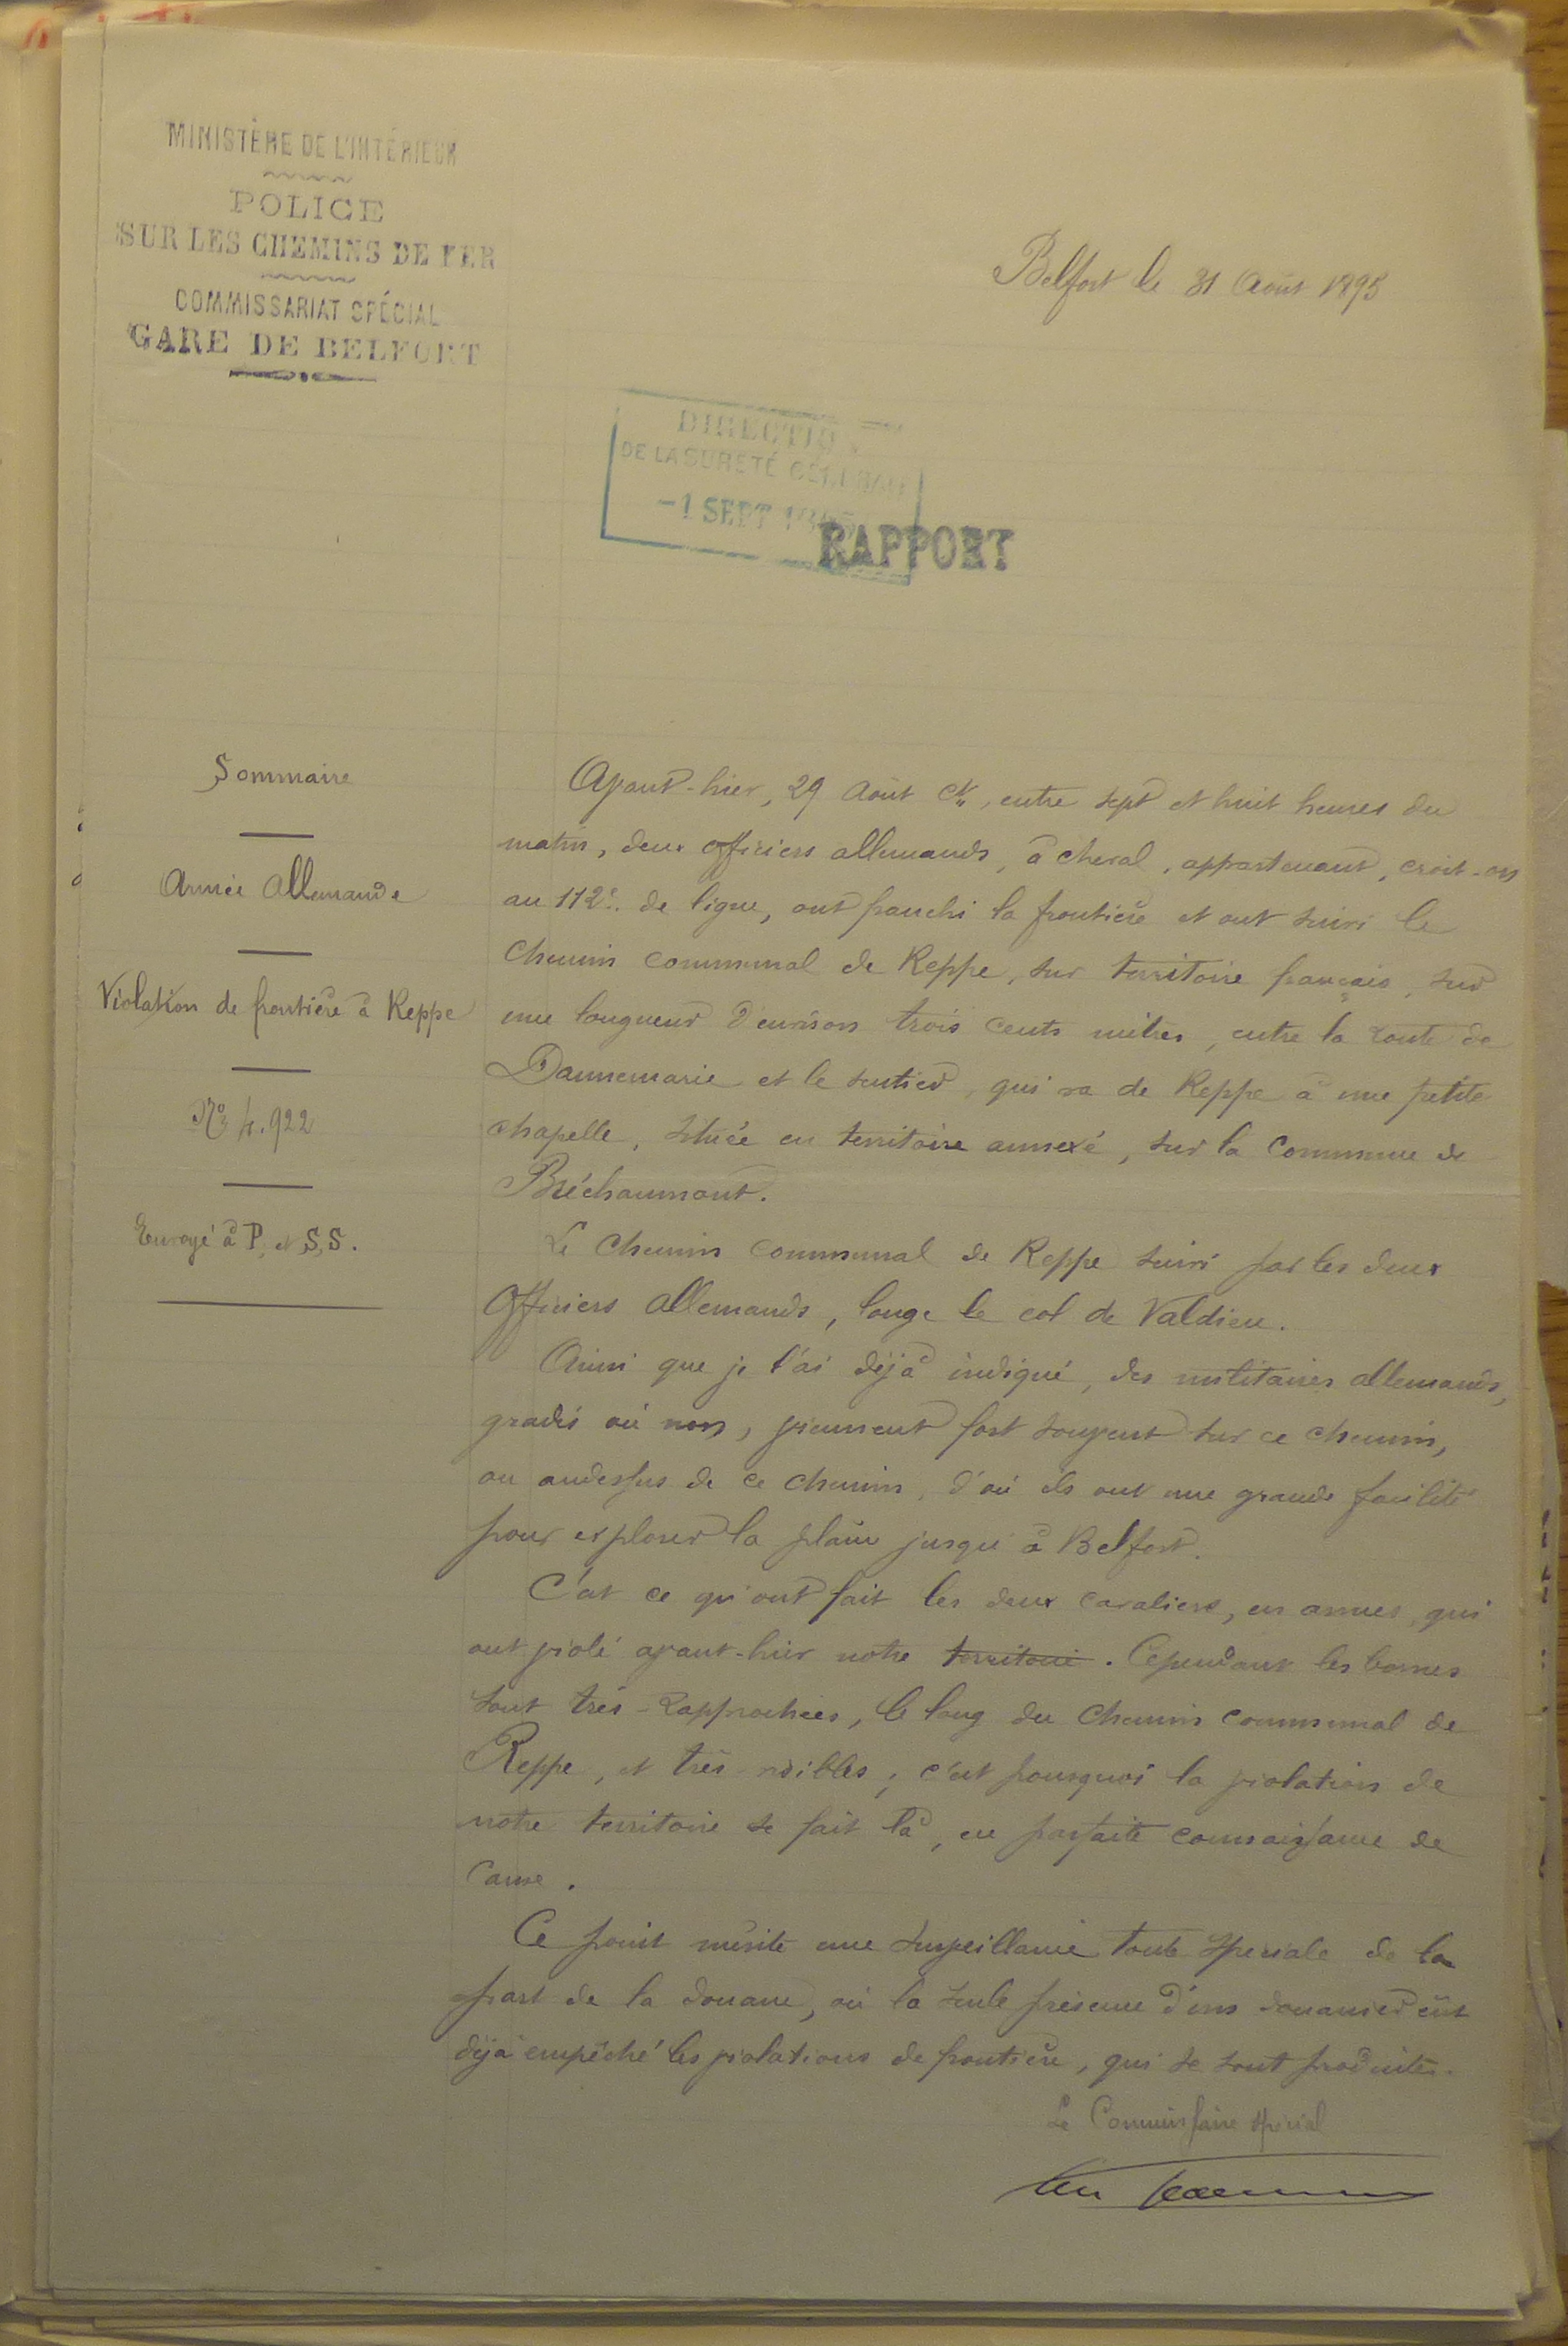 MINISTÈRE DE L'INTÉRIEUR
POLICE
SUR LES CHEMINS DE FER
COMMISSARIAT SPÉCIAL
GARE DE BELFORT
Belfort le 31 Août 1895
DIRECTION
DE LA SURETÉ GÉNÉRALE
-1 SEPT 1895
RAPPORT
Sommaire
Armée Allemande
Violation de frontière à Reppe
No 4.922
Envoyé à P. et S.S.
Avant-hier, 29 Août Ct, entre sept et huit heures du
matin, deux officiers allemands, à cheval, appartenant, croit-on
au 112e. de ligne, ont franchi la frontière et ont suivi le
chemin communal de Reppe, sur territoire français, sur
une longueur d'environ trois cents mètres, entre la route de
Dannemarie et le sentier, qui va de Reppe à une petite
chapelle, située en territoire annexé, sur la Commune de
Bréchaumont.
Le Chemin communal de Reppe suivi par les deux
Officiers allemands, longe le col de Valdieu.
Ainsi que je l'ai déjà indiqué, des militaires allemands,
gradés où non, viennent fort souvent sur ce chemin,
ou audessus de ce chemin, d'où ils ont une grande facilité
pour explorer la plaine jusqu'à Belfort.
C'est ce qu'ont fait les deux cavaliers, en armes, qui
ont violé avant-hier notre territoire. Cependant les bornes
sont très-rapprochées, le long du Chemin communal de
Reppe, et très visibles; c'est pourquoi la violation de
notre territoire se fait là, en parfaite connaissance de
Cause.
Ce point mérite une surveillance toute spéciale de la
part de la douane, où la seule présence d'un douanier eût
déjà empêché les violations de frontière, qui se sont produites.
Le Commissaire spécial